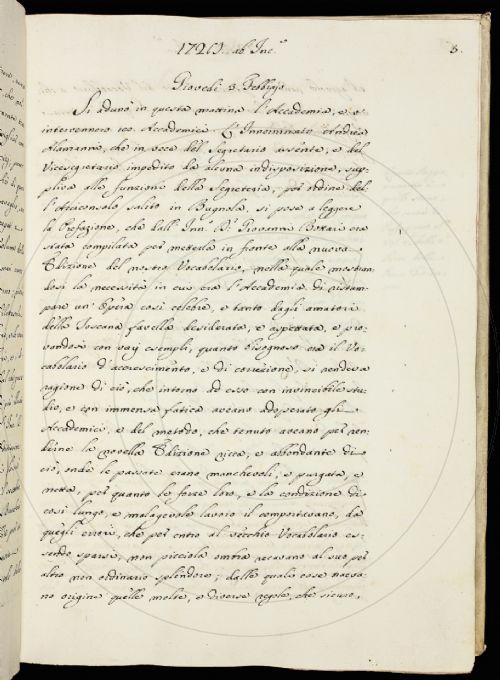 ab Inc.e
Giovedì 3 Febbraio
Si adunò in questa mattina l'Accademia, e
intervennero Accademici. L'Innominato Andrea
Alamanni, che in vece del Segretario assente, e del
Vicesegretario impedito da alcuna indisposizione, sup-
pliva alle funzioni della Segreteria, per ordine del-
l'Arciconsolo salito in Bugnola, si pose a leggere
la Prefazione, che dall' Inn.o D.r Giovanni Bottari era
stata compilata per metterla in fronte alla nuova
Edizione del nostro Vocabolario, nella quale mostran-
dosi la necessità in cui era l'Accademia di ristam-
pare un' Opera così celebre, e tanto dagli amatori
della Toscana favella desiderata, e aspettata, e pro-
vandosi con varj esempli, quanto bisognoso era il Vo-
cabolario d'accrescimento, e di correzione, si rendeva
ragione di ciò, che intorno ad esso con invincibile stu-
dio, e con immensa fatica aveano adoperato gli
Accademici, e del metodo, che tenuto aveano per ren-
derne la novella Edizione ricca, e abbondante di
ciò, onde le passate erano manchevoli, e purgata, e
netta, per quanto le forze loro, e la condizione di
così lungo, e malagevole lavoro il comportavano, da
quegli errori, che per entro al vecchio Vocabolario es-
sendo sparsi, non picciola ombra recavano al suo per
altro non ordinario splendore; dalle quali cose nasceva-
no origine quelle molte, e diverse regole, che sicure,